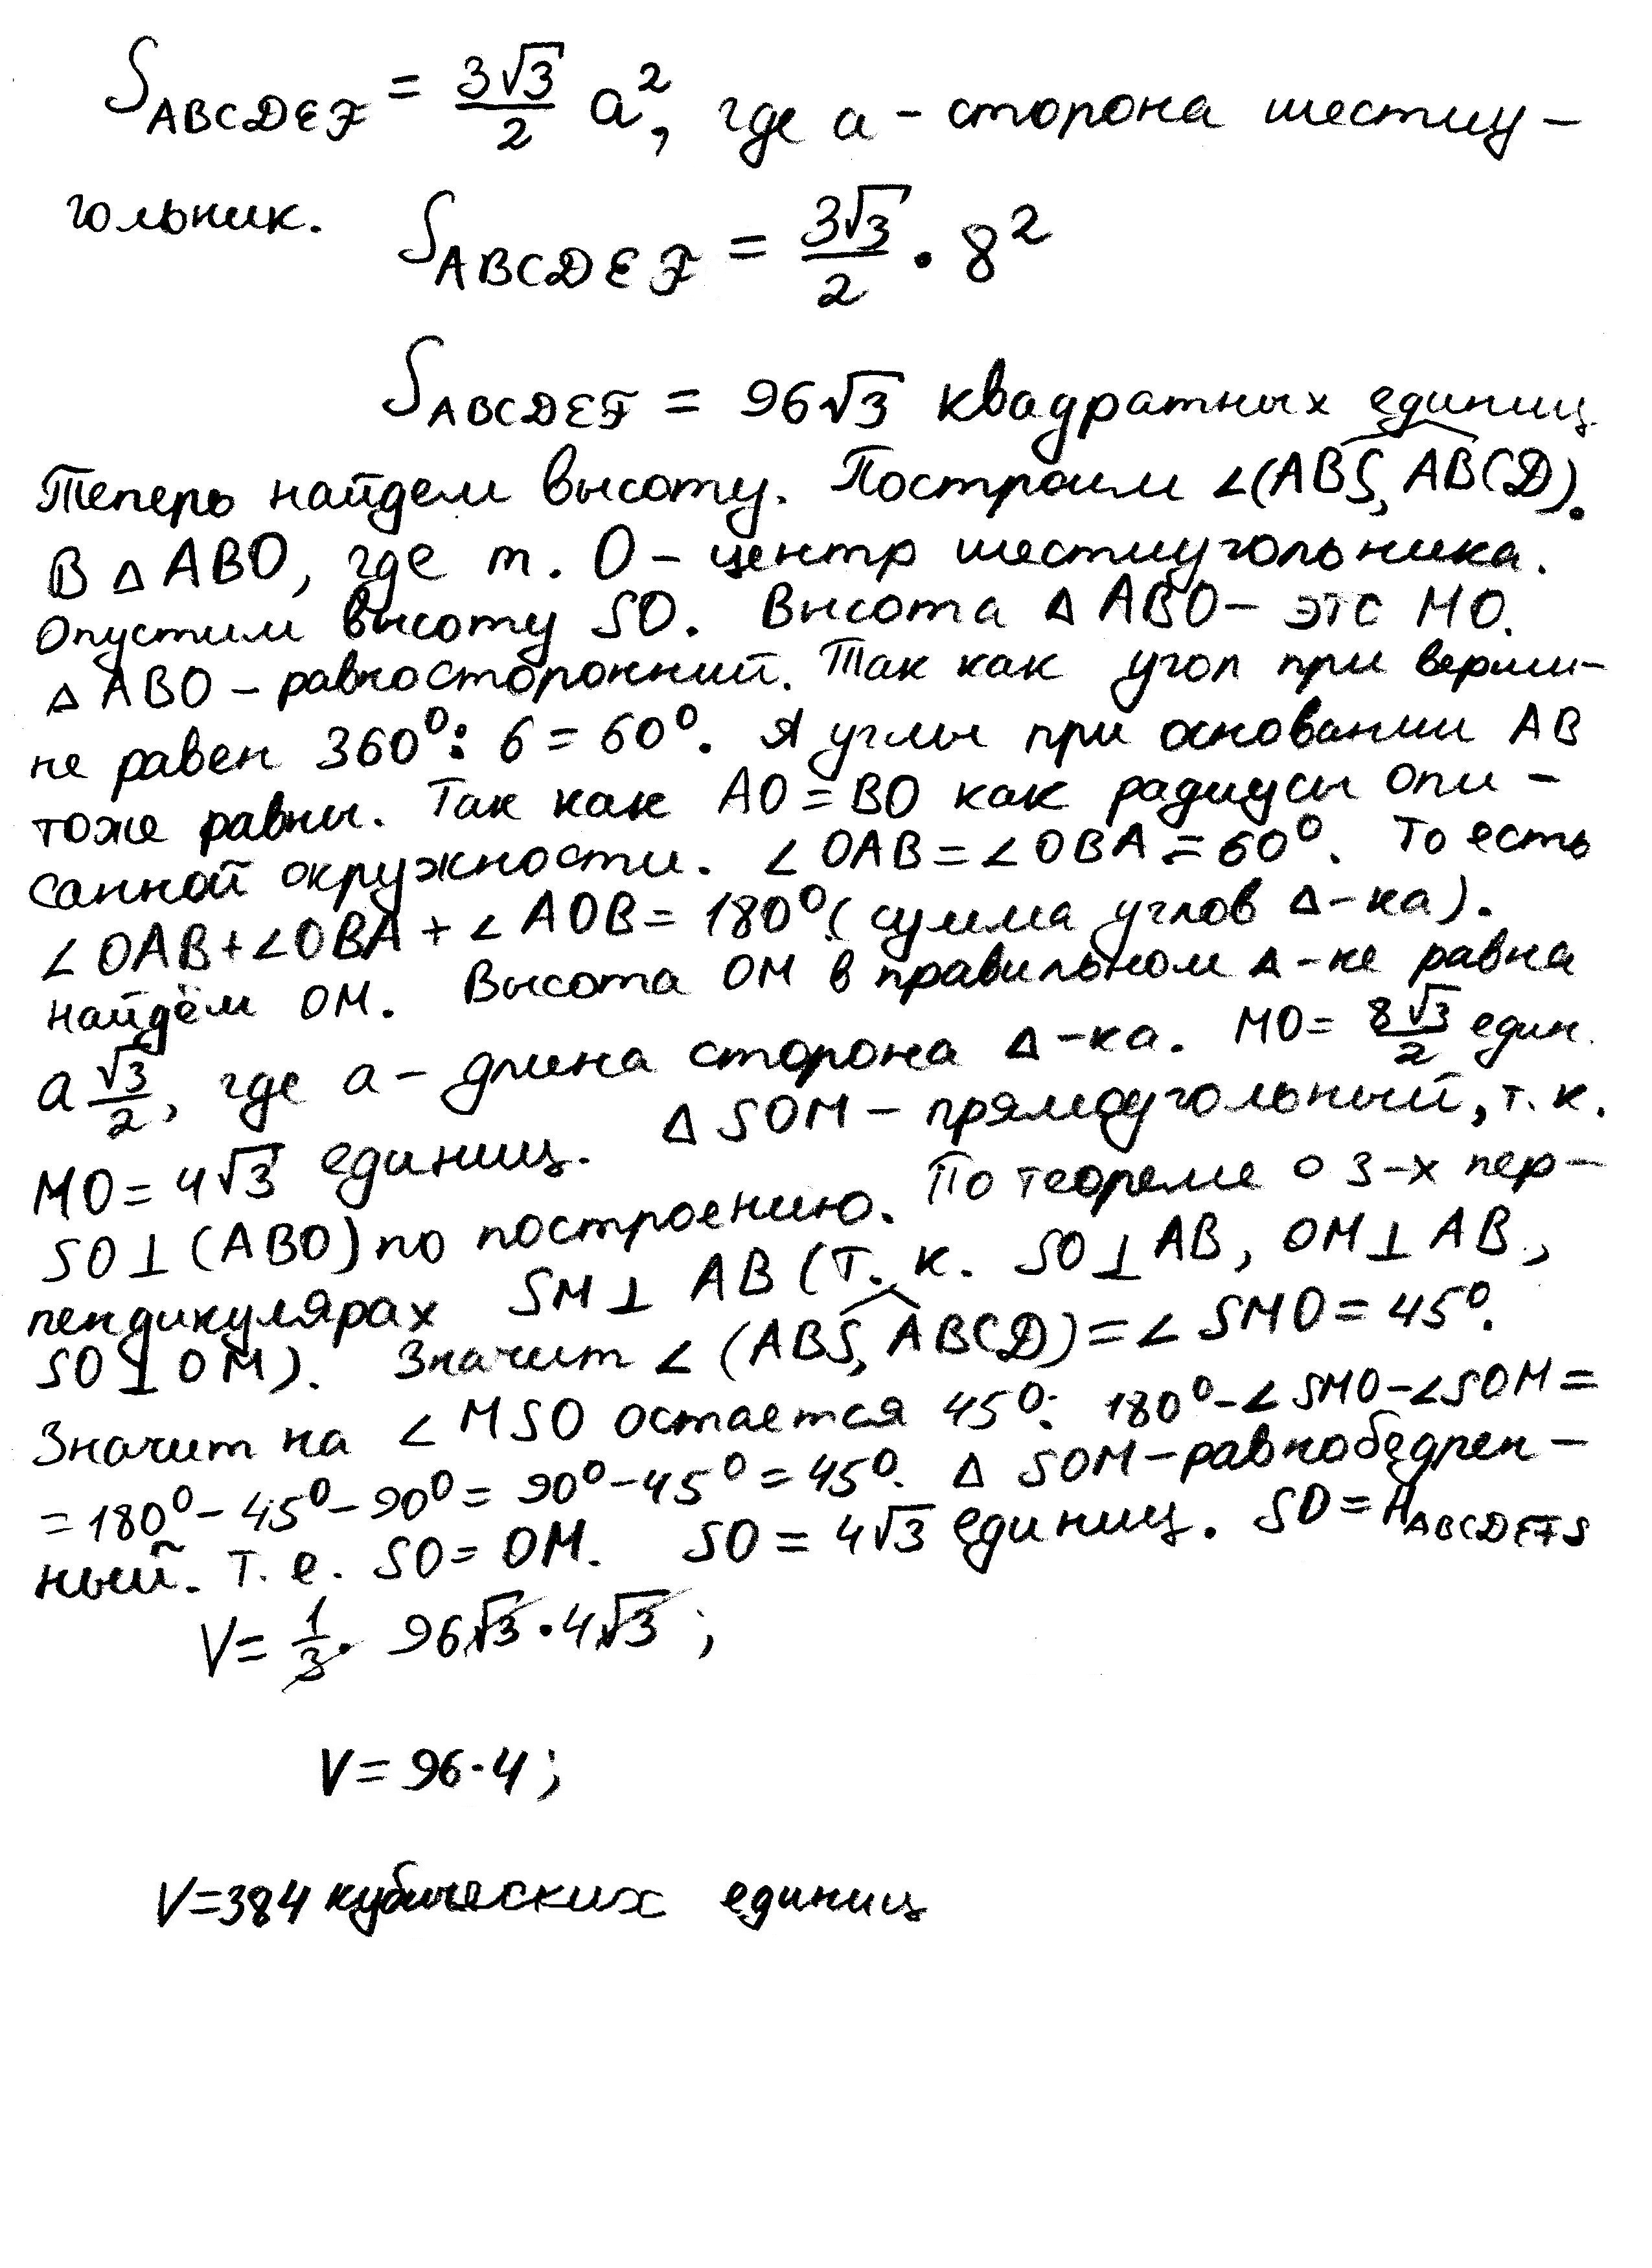 S_ABCDEF = 3√3/2 a², где а - сторона шестиу-
гольник. S_ABCDEF = 3√3/2 · 8²
S_ABCDEF = 96√3 квадратных единиц
Теперь найдем высоту. Построим ∠(ABS, ABCD).
В △ ABO, где т. О - центр шестиугольника.
Опустим высоту SO. Высота △ ABO - это МО.
△ ABO - равносторонний. Так как угол при верши-
не равен 360°: 6 = 60°. А углы при основании АВ
тоже равны. Так как AO = BO как радиусы опи-
санной окружности. ∠OAB = ∠OBA = 60°. То есть
∠OAB + ∠OBA + ∠AOB = 180° (сумма углов △-ка).
Найдём ОМ. Высота ОМ в правильном △-ке равна
a √3/2, где а - длина сторона △-ка. МО = 8√3/2 един.
МО = 4√3 единиц. △ SOM - прямоугольный, т. к.
SO ⊥ (ABO) по построению. По теореме о 3-х пер-
пендикулярах SM ⊥ AB (т. к. SO ⊥ AB, OM ⊥ AB,
SO ⊥ OM). Значит ∠ (ABS, ABCD) = ∠ SMO = 45°.
Значит на ∠ MSO остается 45°: 180° - ∠SMO - ∠SOM =
= 180° - 45° - 90° = 90° - 45° = 45°. △ SOM - равнобедрен-
ный. т. е. SO = OM. SO = 4√3 единиц. SO = H_ABCDEFS
V = 1/3 · 96√3 · 4√3 ;
V = 96 · 4 ;
V = 384 кубических единиц